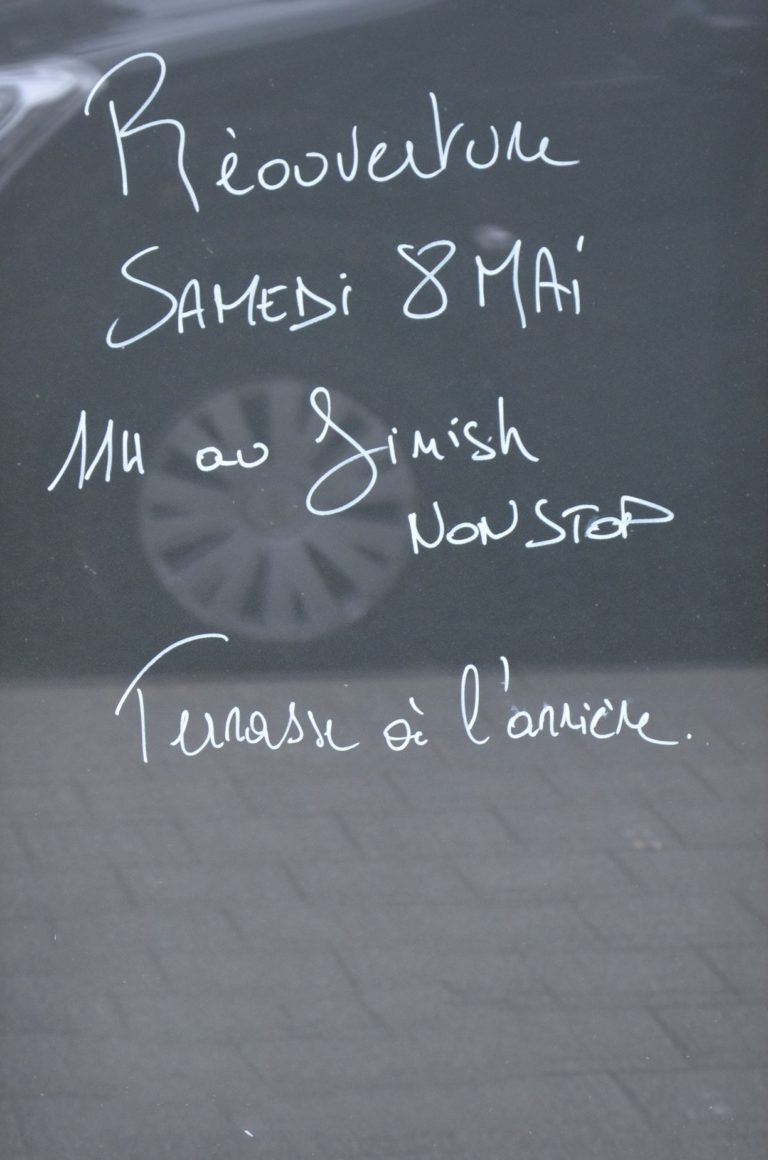 Réouverture
SAMEDi 8 MAi
11H au finish
NON STOP
Terrasse à l'arrière.